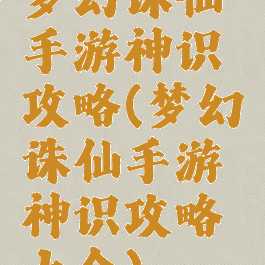 梦幻诛仙
手游神识
攻略(梦幻
诛仙手游
神识攻略
大全)